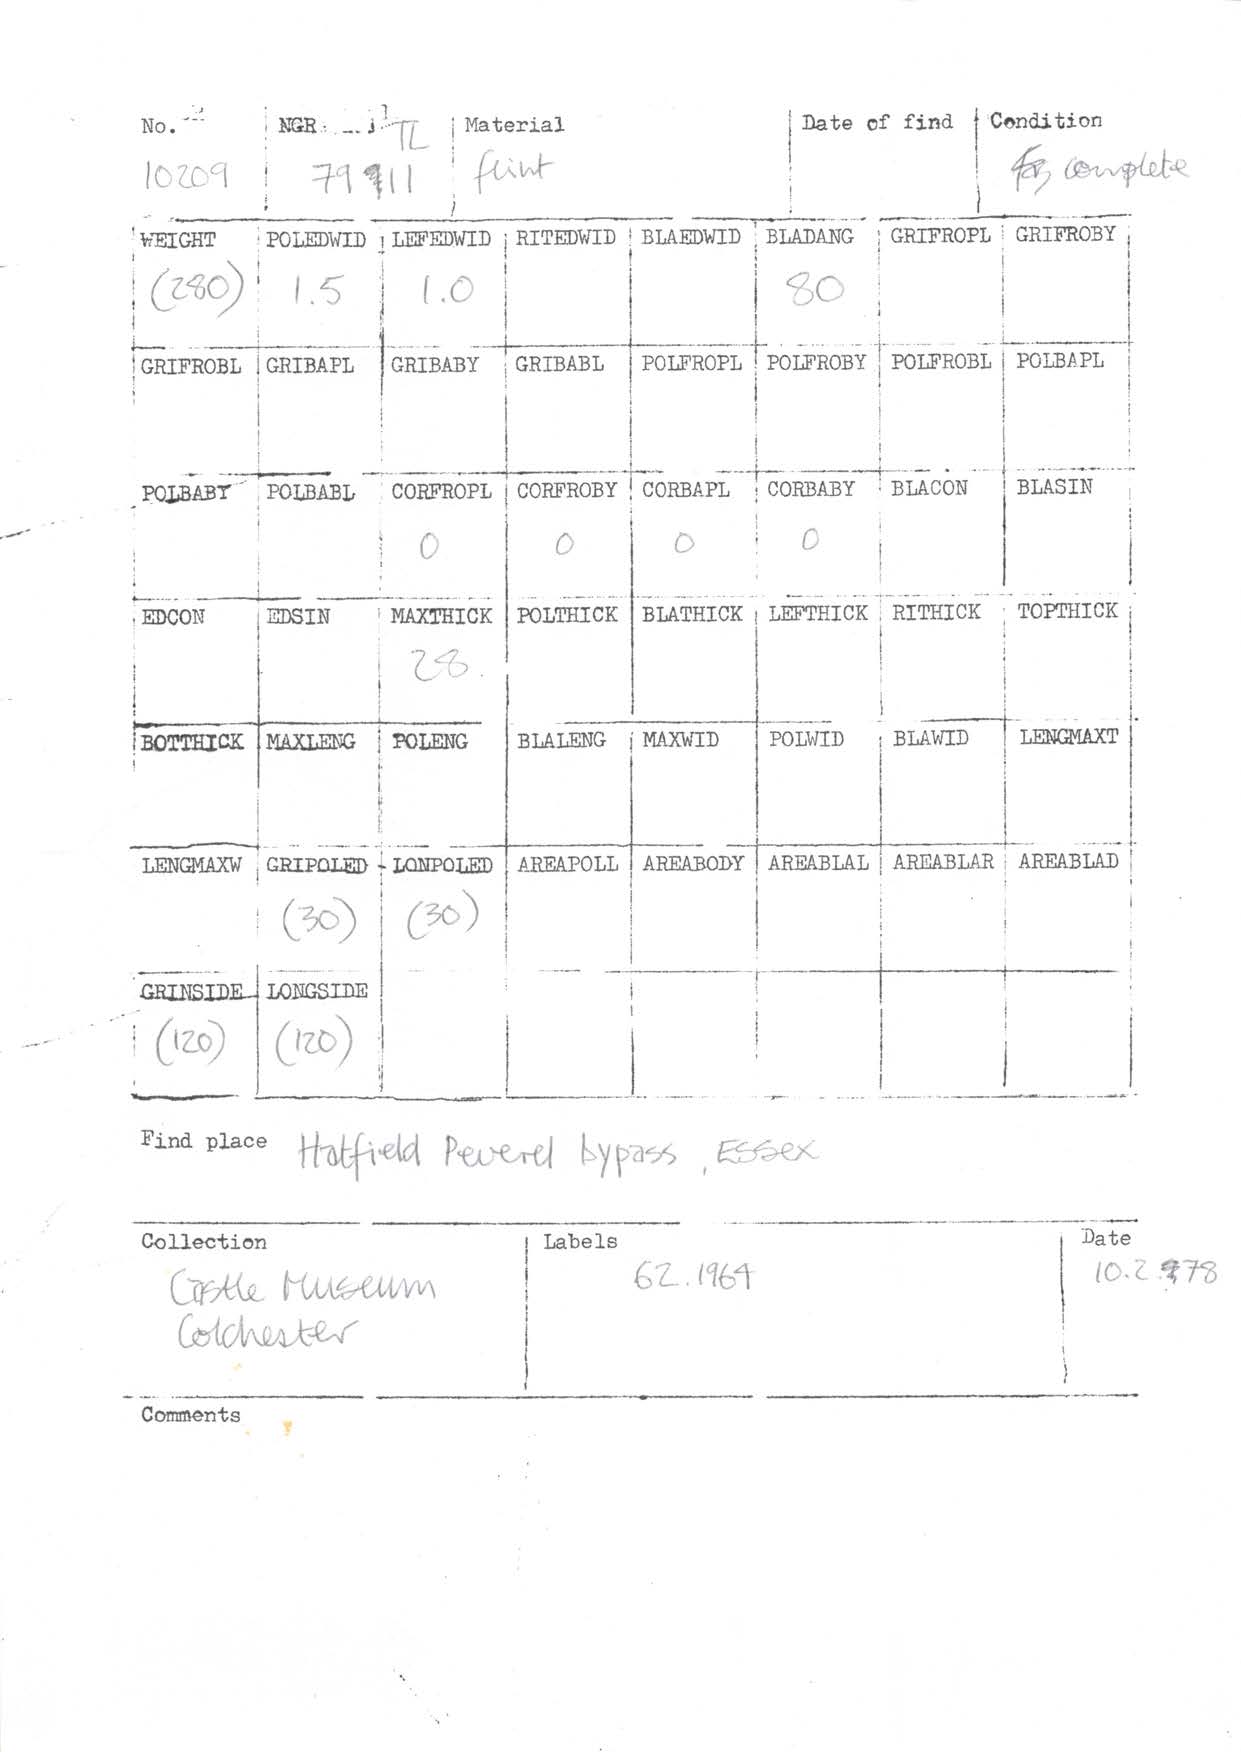 No. NGR TL Material Date of find Condition
10209 79 11 flint complete
WEIGHT POLEDWID LEFEDWID RITEDWID BLAEDWID BLADANG GRIFROPL GRIFROBY
(280) 1.5 1.0 80
GRIFROBL GRIBAPL GRIBABY GRIBABL POLFROPL POLFROBY POLFROBL POLBAPL
POLBABY POLBABL CORFROPL CORFROBY CORBAPL CORBABY BLACON BLASIN
0 0 0 0
EDCON EDSIN MAXTHICK POLTHICK BLATHICK LEFTHICK RITHICK TOPTHICK
28.
BOTTHICK MAXLENG POLENG BLALENG MAXWID POLWID BLAWID LENGMAXT
LENGMAXW GRIPOLED LONPOLED AREAPOLL AREABODY AREABLAL AREABLAR AREABLAD
(30) (30)
GRINSIDE LONGSIDE
(120) (120)
Find place Hatfield Peverel bypass, Essex
Collection Labels Date
Castle Museum 62.1964 10.2.78
Colchester
Comments